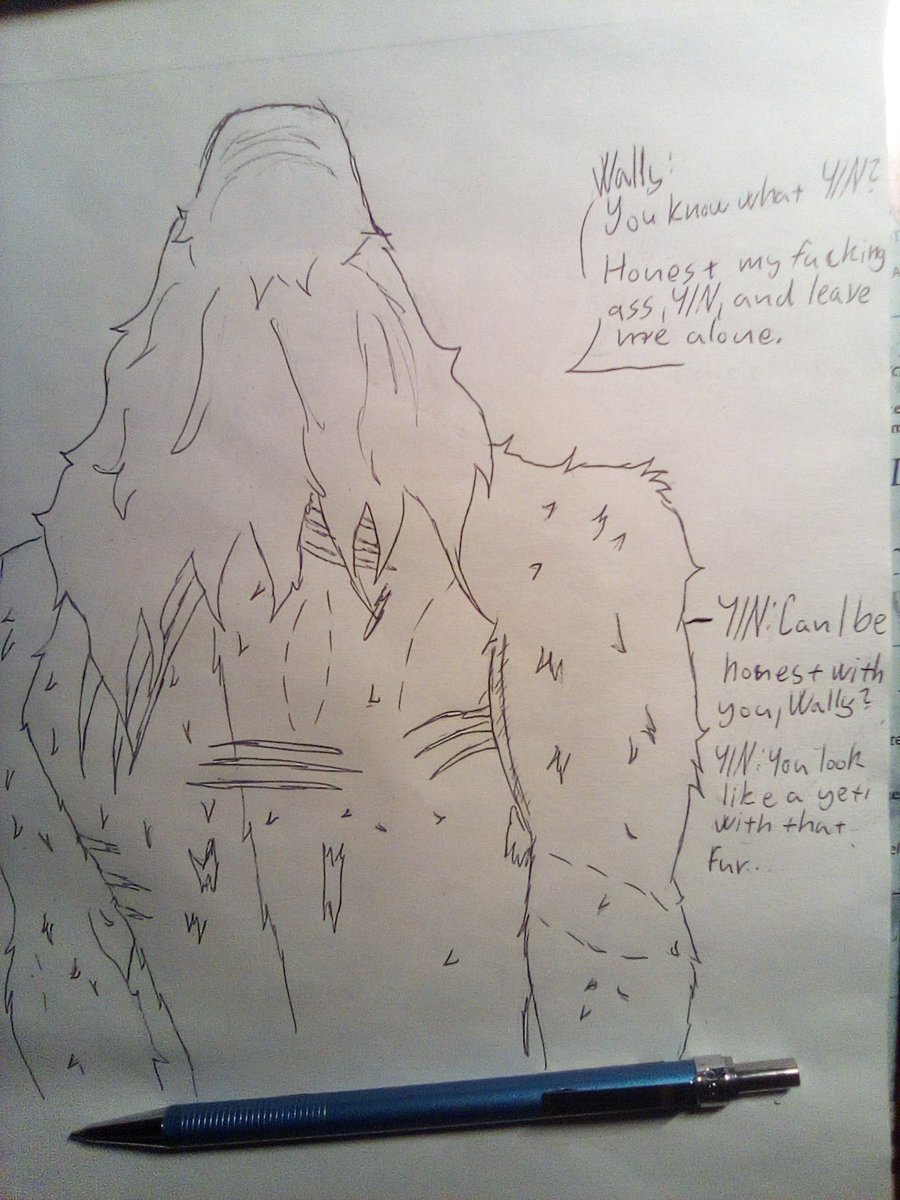 Wally:
You know what Y/N?
Honest my fucking
ass, Y/N, and leave
me alone.
Y/N: Can I be
honest with
you, Wally?
Y/N: You look
like a yeti
with that
fur...